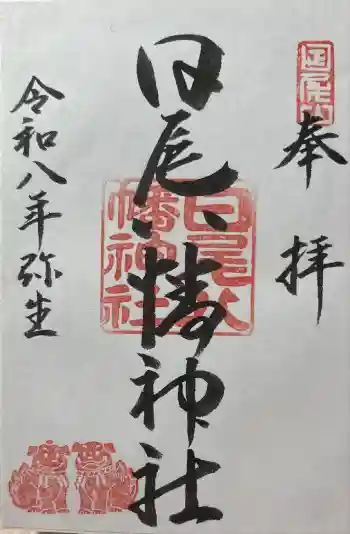 奉拝
日尾八幡神社
日尾八
幡神社
令和八年弥生